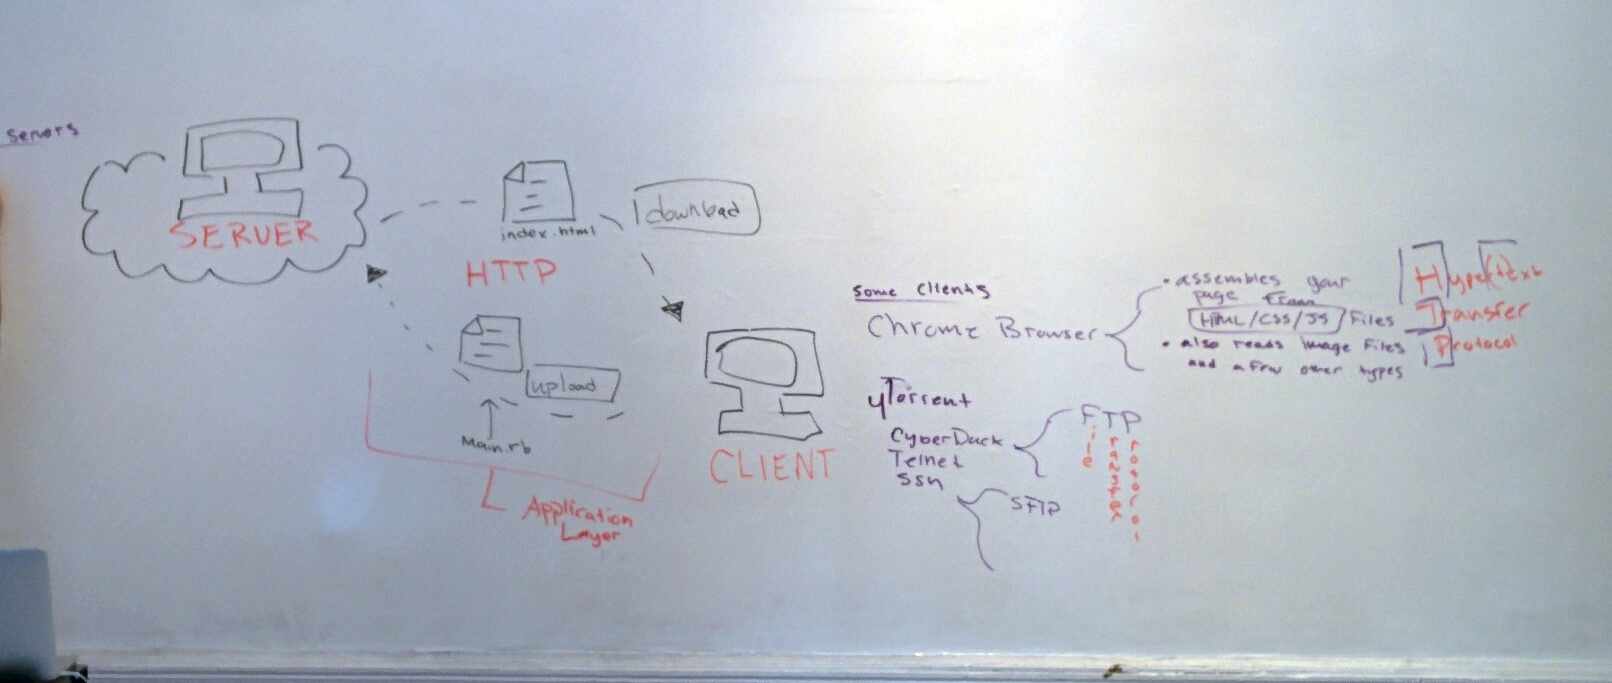 Servers
SERVER
index.html
HTTP
download
upload
Main.rb
Application
Layer
CLIENT
some clients
Chrome Browser
• assembles your
page from
HTML/CSS/JS Files
• also reads image files
and a few other types
Hypertext
Transfer
Protocol
µTorrent
CyberDuck
Telnet
SSH
FTP
ile
ransfer
rotocol
SFTP